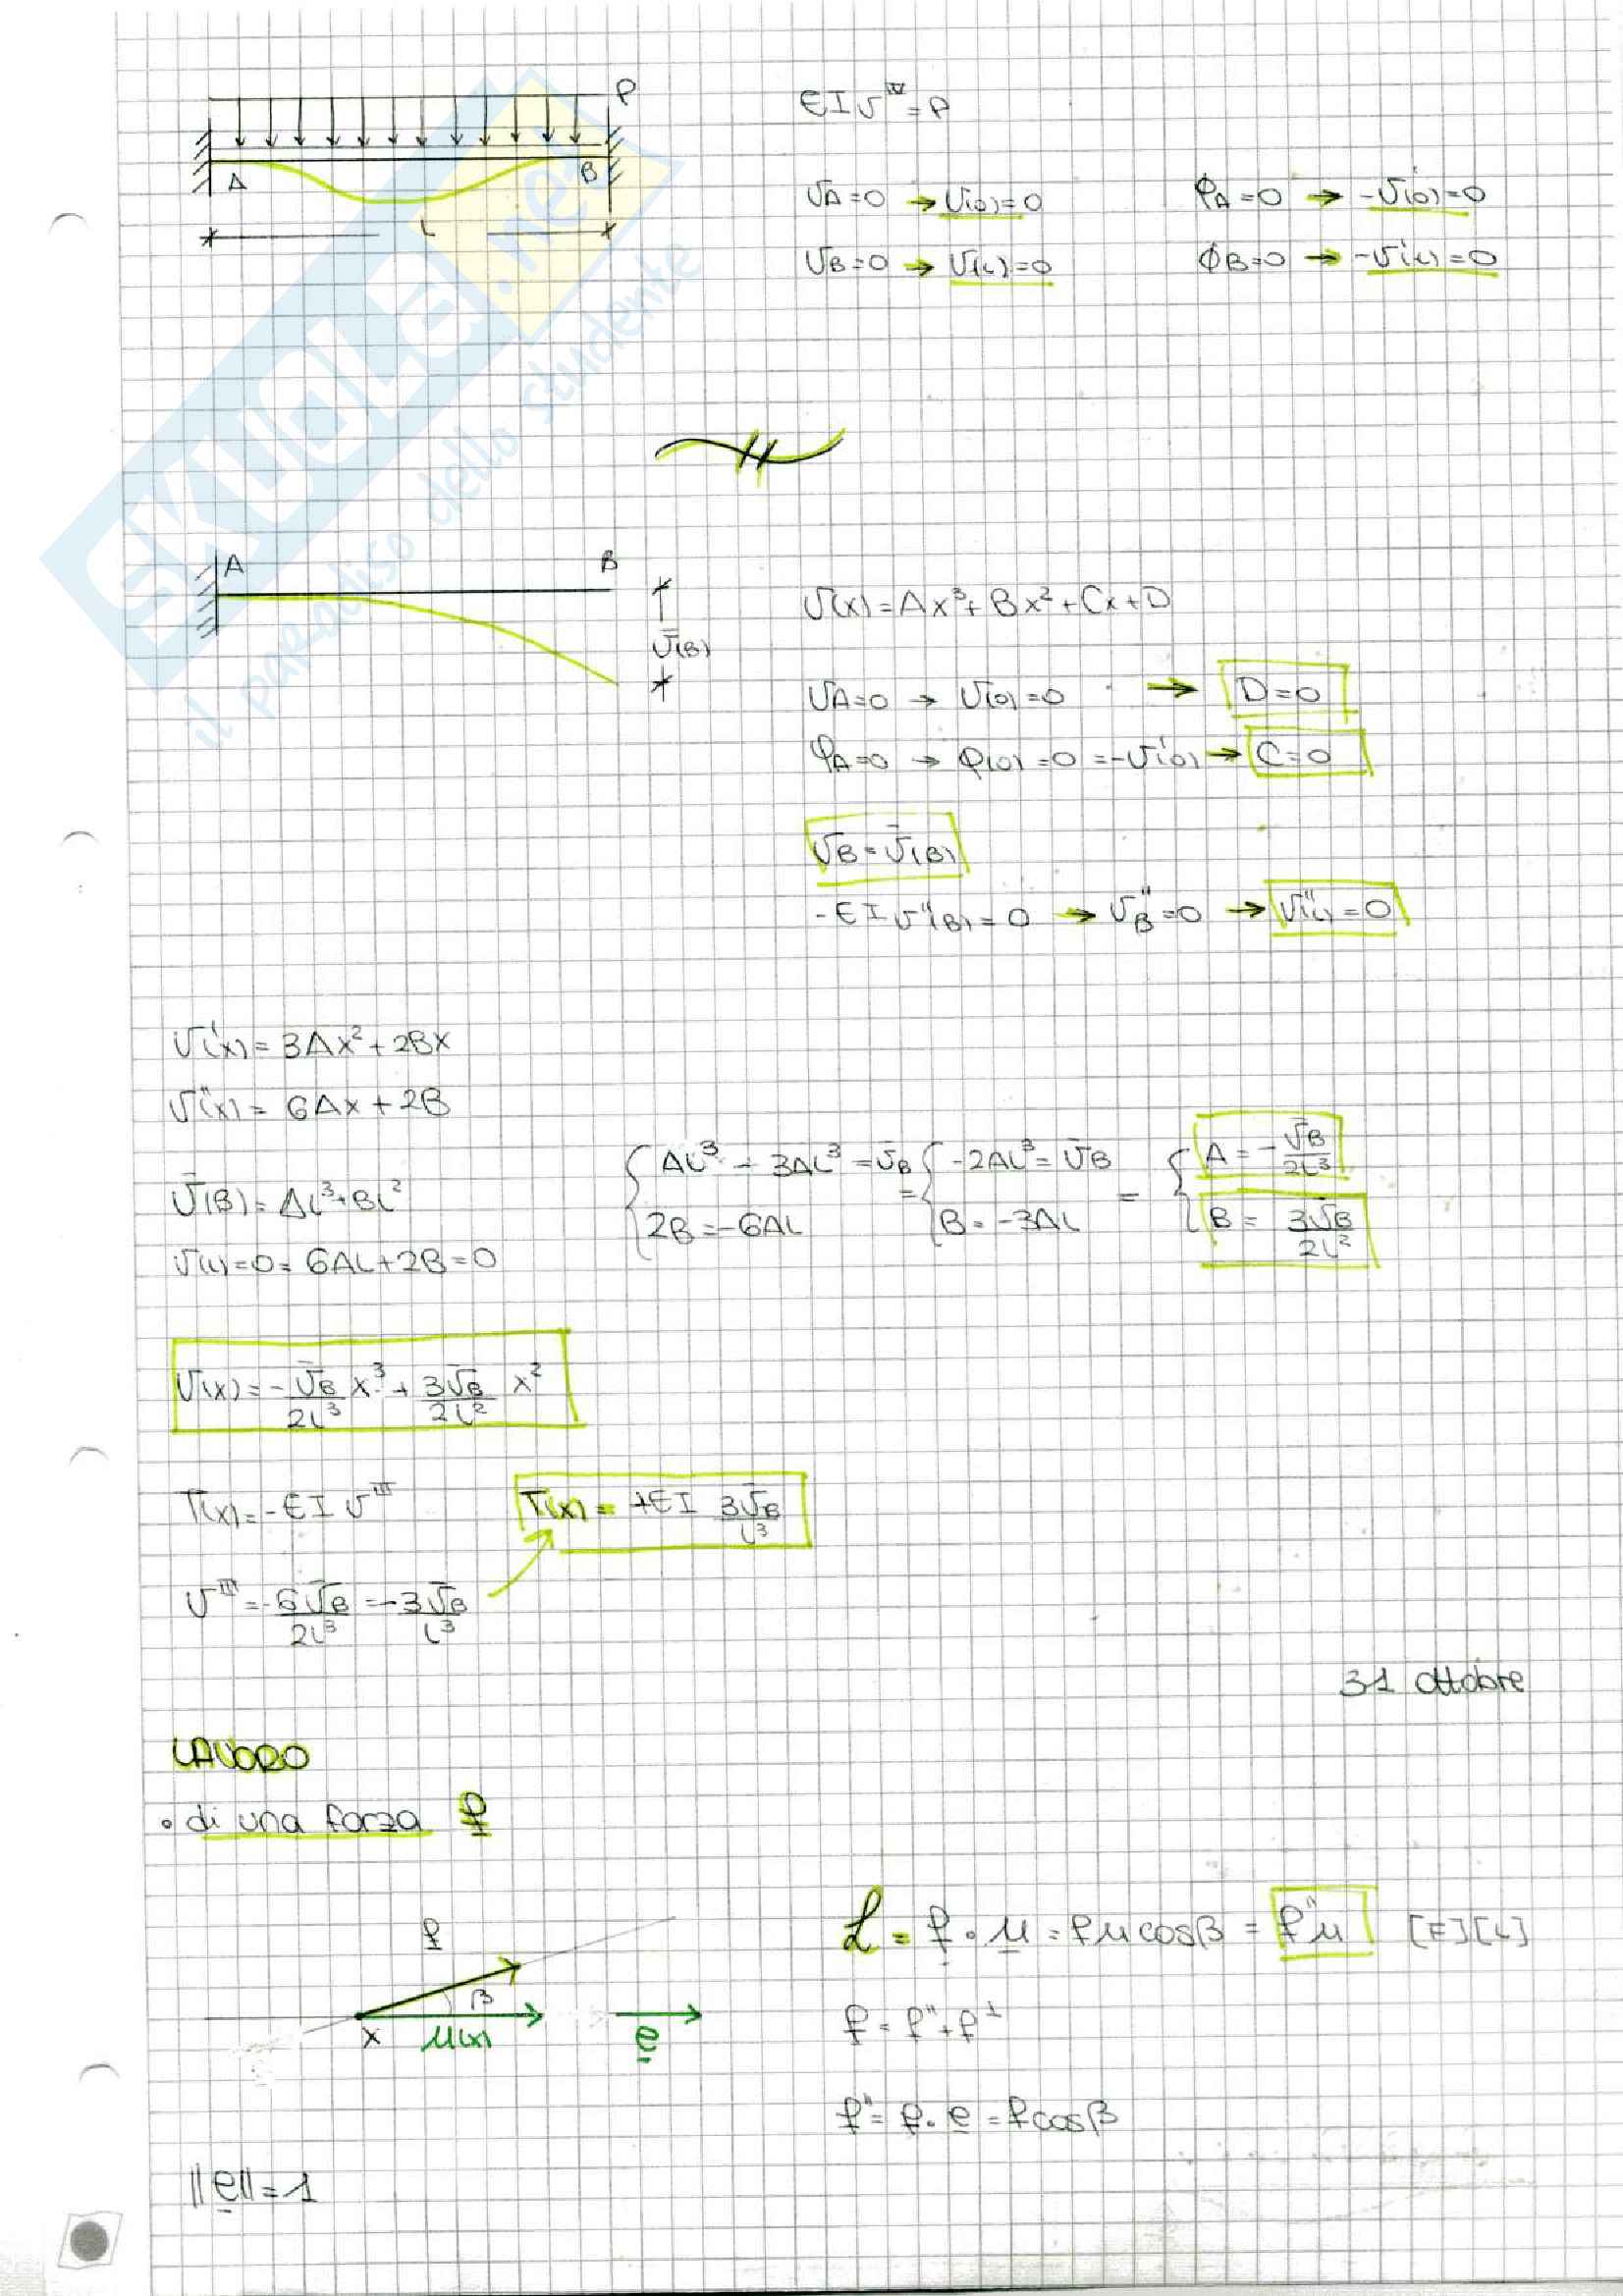 P
A
B
L
EI v^IV = P
v_A=0 → v(0)=0
φ_A=0 → -v'(0)=0
v_B=0 → v(L)=0
ϕ_B=0 → -v'(L)=0
SKUOLA.net
il paradiso dello studente
A
B
v̄(B)
v(x) = Ax³+Bx²+Cx+D
v_A=0 → v(0)=0 → D=0
φ_A=0 → φ(0)=0=-v'(0) → C=0
v_B=v̄(B)
-EI v''(B)=0 → v''_B=0 → v''(L)=0
v'(x)= 3Ax²+2Bx
v''(x)= 6Ax+2B
v̄(B)= AL³+BL²
v(L)=0= 6AL+2B=0
{ AL³ - 3AL³ = v̄_B = { -2AL³= v̄_B = { A = - v̄_B/2L³
{ 2B=-6AL { B=-3AL { B= 3v̄_B/2L²
v(x)= - v̄_B/2L³ x³ + 3v̄_B/2L² x²
T(x)=-EI v^III
T(x) = +EI 3v̄_B/L³
v^III = -6v̄_B/2L³ = -3v̄_B/L³
31 ottobre
LAVORO
• di una forza f
f
β
x
u(x)
e
L = f · u = fu cosβ = f"u [F][L]
f = f"+f⊥
f"= f · e = f cosβ
||e||=1